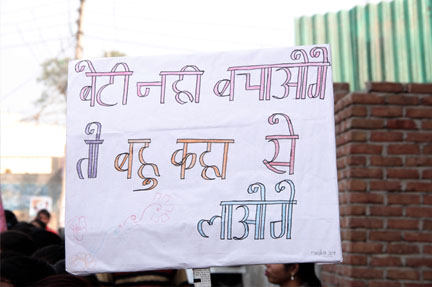 बेटी नही बचाओगे
तो बहु कहा से
लाओगे